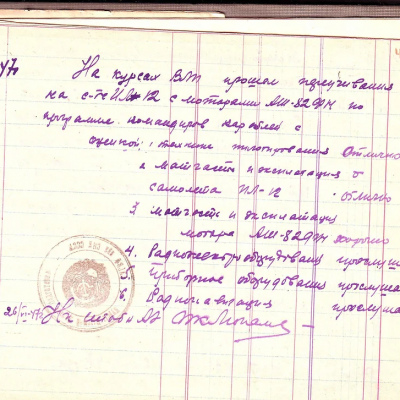 47г
На курсах ВЛП прошел переучивание
на с-те ИЛ-12 с моторами АШ-82ФН по
программе командиров кораблей с
оценкой: техника пилотирования Отлично
2. матчасть и эксплатация
самолета ИЛ-12 отлично
3 матчасть и эксплатация
мотора АШ-82ФН хорошо
4. Радиоэлектрооборудования прослуша
5. Приборное оборудования прослуша
6. Радионавигация прослуша
26/ 47г Нач штаба